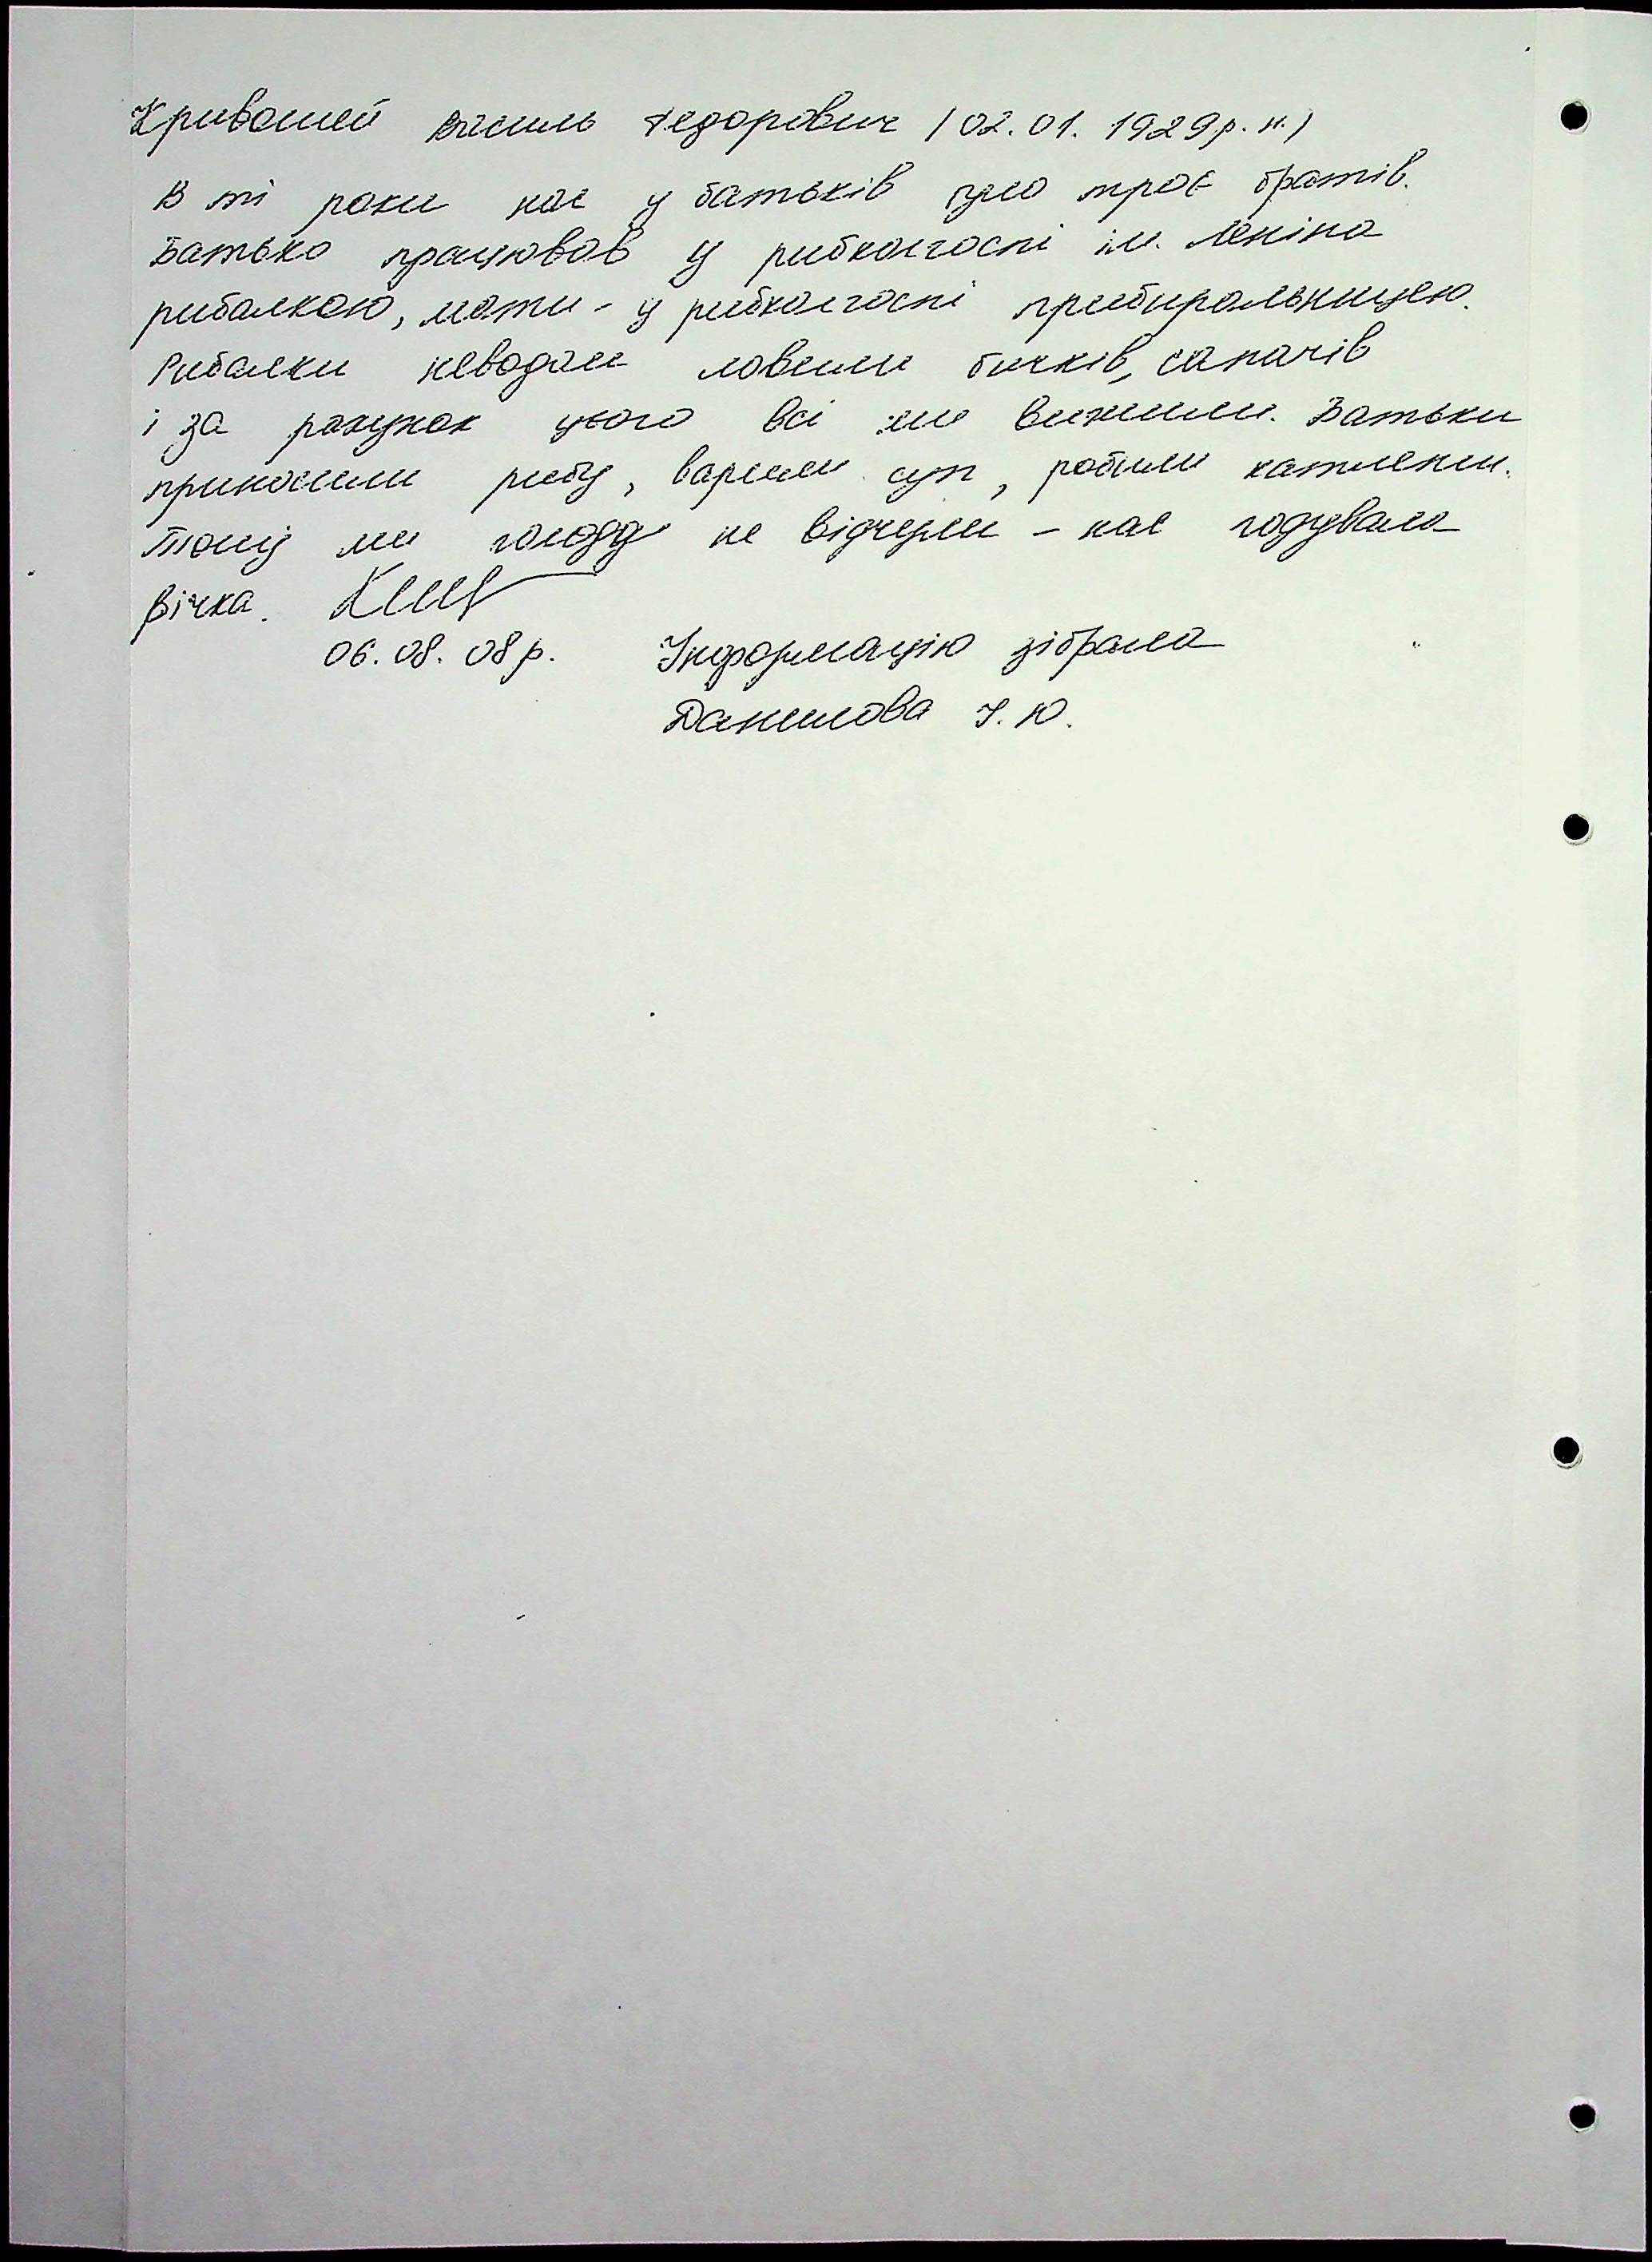 Кривошей Василь Федорович (02.01.1929р.н.)
В ті роки нас у батьків було троє братів.
Батько працював у рибколгоспі ім. Леніна
рибалкою, мати - у рибколгоспі прибиральницею.
Рибалки неводом ловили бичків, сапачів
і за рахунок цього всі ми вижили. Батьки
приносили рибу, варили суп, робили катлети.
Тому ми голоду не відчули - нас годувала
річка.
06.08.08р. Інформацію зібрала
Данилова І.Ю.